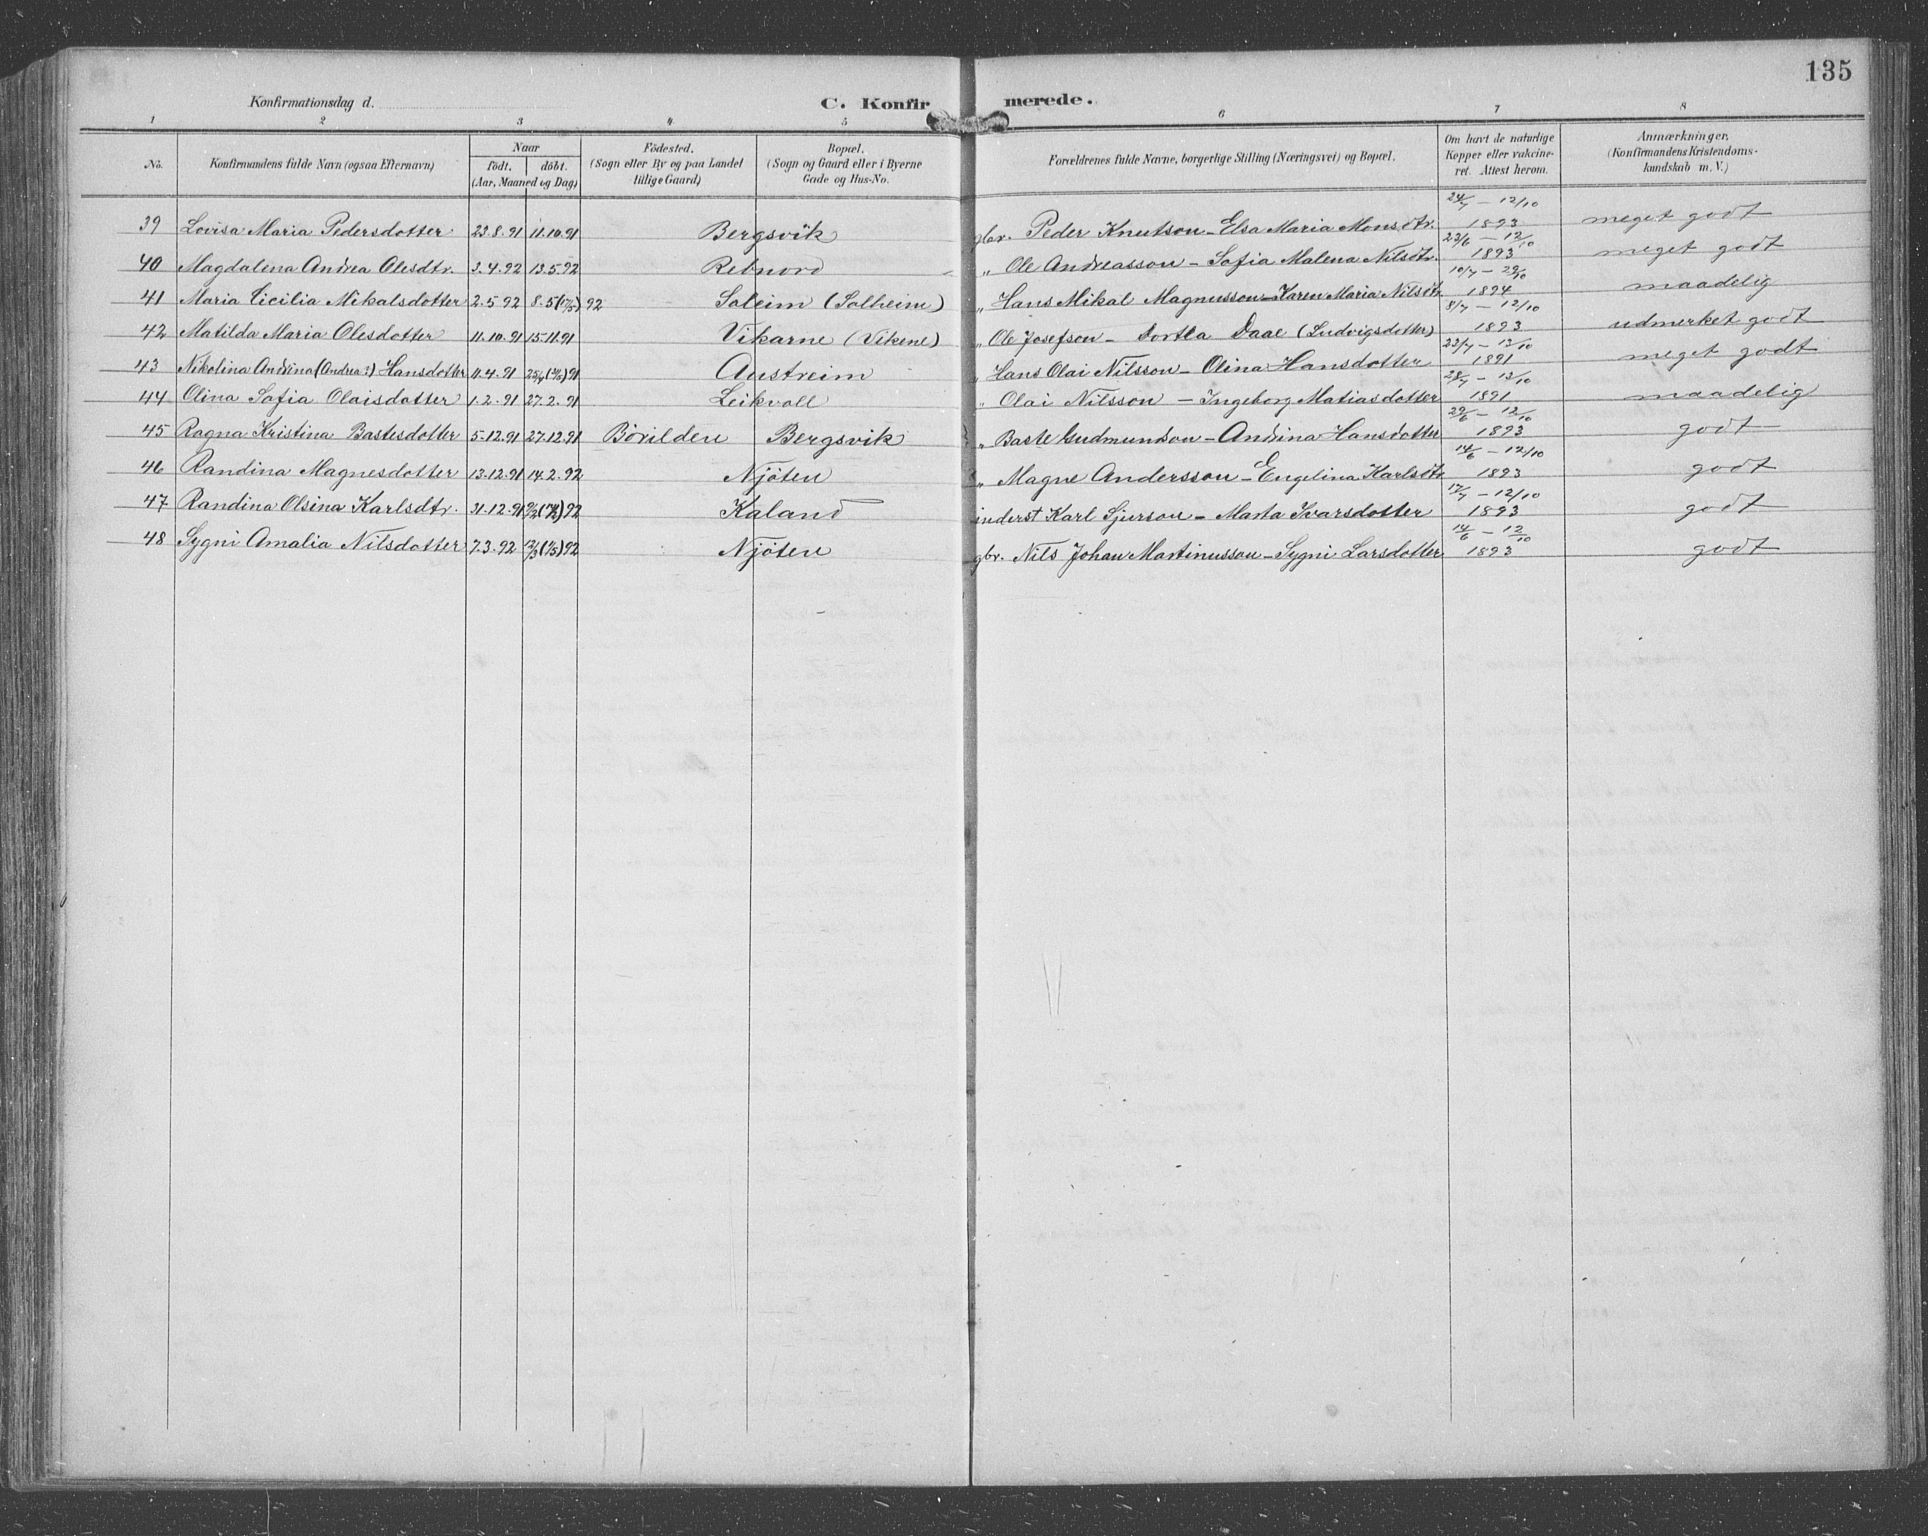 135
Konfirmationsdag d. C. Konfirmerede.
1 2 3 4 5 6 7 8
No. Konfirmandens fulde Navn (ogsaa Efternavn) Naar Födt. döbt. (Aar, Maaned og Dag) Födested. (Sogn eller By og paa Landet tillige Gaard) Bopæl. (Sogn og Gaard eller i Byerne Gade og Hus-No. Forældrenes fulde Navne, borgerlige Stilling (Næringsvei) og Bopæl. Om havt de naturlige Kopper eller vakcineret. Attest herom. Anmærkninger. (Konfirmandens Kristendomskundskab m. V.)
39 Lovisa Maria Pedersdotter 23.8.91 11.10.91 Bergsvik gbr. Peder Knutson - Elsa Maria Monsdtr. 24/7 - 12/10 1893 meget godt
40 Magdalena Andrea Olesdtr. 3.4.92 13.5.92 Rebnord " Ole Andreasson - Sofia Malena Nilsdtr. 23/6 - 12/10 1893 meget godt
41 Maria Cicilia Mikalsdotter 2.5.92 8.5 92 Soleim (Solheim) " Hans Mikal Magnusson - Karen Maria Nilsdtr 10/7 - 29/10 1894 maadelig
42 Matilda Maria Olesdotter 11.10.91 15.11.91 Vikarne (Vikene) " Ole Josefson - Dortea Daae (Ludvigsdotter) 8/7 - 12/10 1893 udmerket godt
43 Nikolina Andrina (Andrea?) Hansdotter 11.4.91 91 Austreim " Hans Olai Nilsson - Olina Hansdotter 23/7 - 13/10 1891 meget godt
44 Olina Sofia Olaisdotter 1.2.91 27.2.91 Leikvoll " Olai Nilsson - Ingeborg Matiasdotter 28/7 - 13/10 1891 maadelig
45 Ragna Kristina Bastesdotter 5.12.91 27.12.91 Börilden Bergsvik " Baste Gudmundson - Andrina Hansdotter 29/6 - 12/10 1893 godt
46 Randina Magnesdotter 13.12.91 14.2.92 Njöten " Magne Andersson - Engelina Karlsdtr 14/6 - 12/10 1893 godt
47 Randina Olsina Karlsdtr. 31.12.91 92 Kaland inderst Karl Sjurson - Marta Ivarsdotter 17/7 - 12/10 1893 godt
48 Sygni Amalia Nilsdotter 7.3.92 92 Njöten gbr. Nils Johan Martinusson - Sygni Larsdotter 14/6 - 12/10 1893 godt